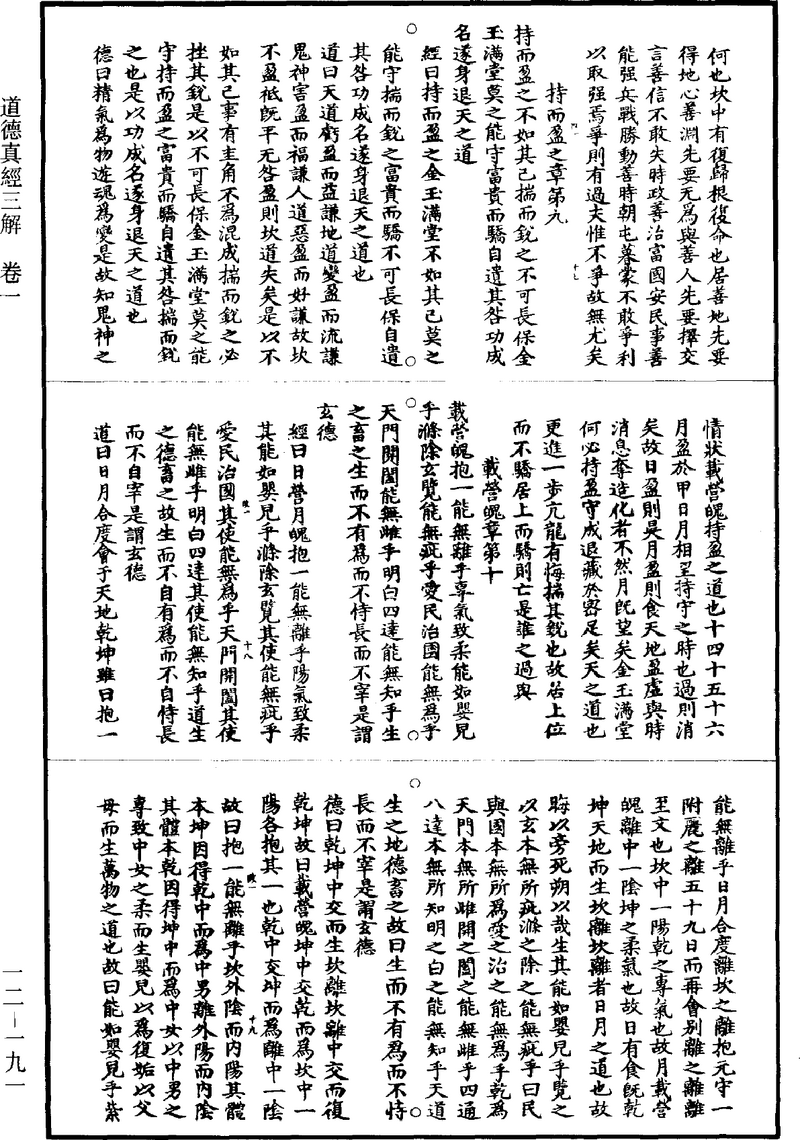 何也坎中有復歸根復命也居善地先要
得地心善淵先要无為與善人先要擇交
言善信不敢失時政善治富國安民事善
能强兵戰勝動善時朝屯暮蒙不敢爭利
以取强焉爭則有過夫惟不爭故無尤矣
持而盈之章第九
持而盈之不如其已揣而銳之不可長保金
玉滿堂莫之能守富貴而驕自遺其咎功成
名遂身退天之道
經曰持而盈之金玉滿堂不如其已莫之
能守揣而銳之富貴而驕不可長保自遺
其咎功成名遂身退天之道也
道曰天道虧盈而益謙地道變盈而流謙
鬼神害盈而福謙人道惡盈而好謙故坎
不盈祗旣平无咎盈則坎道失矣是以不
如其已事有圭角不為混成揣而銳之必
挫其銳是以不可長保金玉滿堂莫之能
守持而盈之富貴而驕自遺其咎揣而銳
之也是以功成名遂身退天之道也
德曰精氣為物遊魂為變是故知鬼神之
情狀載營魄持盈之道也十四十五十六
月盈於甲日月相望持守之時也過則消
矣故日盈則昃月盈則食天地盈虛與時
消息奪造化者不然月旣望矣金玉滿堂
何必持盈守成退藏於密足矣天之道也
更進一步亢龍有悔揣其銳也故居上位
而不驕居上而驕則亡是誰之過與
載營魄章第十
載營魄抱一能無離乎專氣致柔能如嬰兒
乎滌除玄覽能無疵乎愛民治國能無為乎
天門開闔能無雌乎明白四達能無知乎生
之畜之生而不有為而不恃長而不宰是謂
玄德
經曰日營月魄抱一能無離乎陽氣致柔
其能如嬰兒乎滌除玄覽其使能無疵乎
愛民治國其使能無為乎天門開闔其使
能無雌乎明白四達其使能無知乎道生
之德畜之故生而不自有為而不自恃長
而不自宰是謂玄德
道曰日月合度會于天地乾坤雖曰抱一
能無離乎日月合度離坎之離抱元守一
附麗之離五十九日而再會別離之離離
至文也坎中一陽乾之專氣也故月載營
魄離中一陰坤之柔氣也故日有食旣乾
坤天地而生坎離坎離者日月之道也故
晦以旁死朔以哉生其能如嬰兒乎覽之
以玄本無所疵滌之除之能無疵乎曰民
與國本無所為愛之治之能無為乎乾為
天門本無所雌開之闔之能無雌乎四通
八達本無所知明之白之能無知乎天道
生之地德畜之故曰生而不有為而不恃
長而不宰是謂玄德
德曰乾坤中交而生坎離坎離中交而復
乾坤故曰載營魄坤中交乾而為坎中一
陽各抱其一也乾中交坤而為離中一陰
故曰抱一能無離乎坎外陰而內陽其體
本坤因得乾中而為中男離外陽而內陰
其體本乾因得坤中而為中女以中男之
專致中女之柔而生嬰兒以為復姤以父
母而生萬物之道也故曰能如嬰兒乎紫
道德真經三解 卷一
一二－一九一